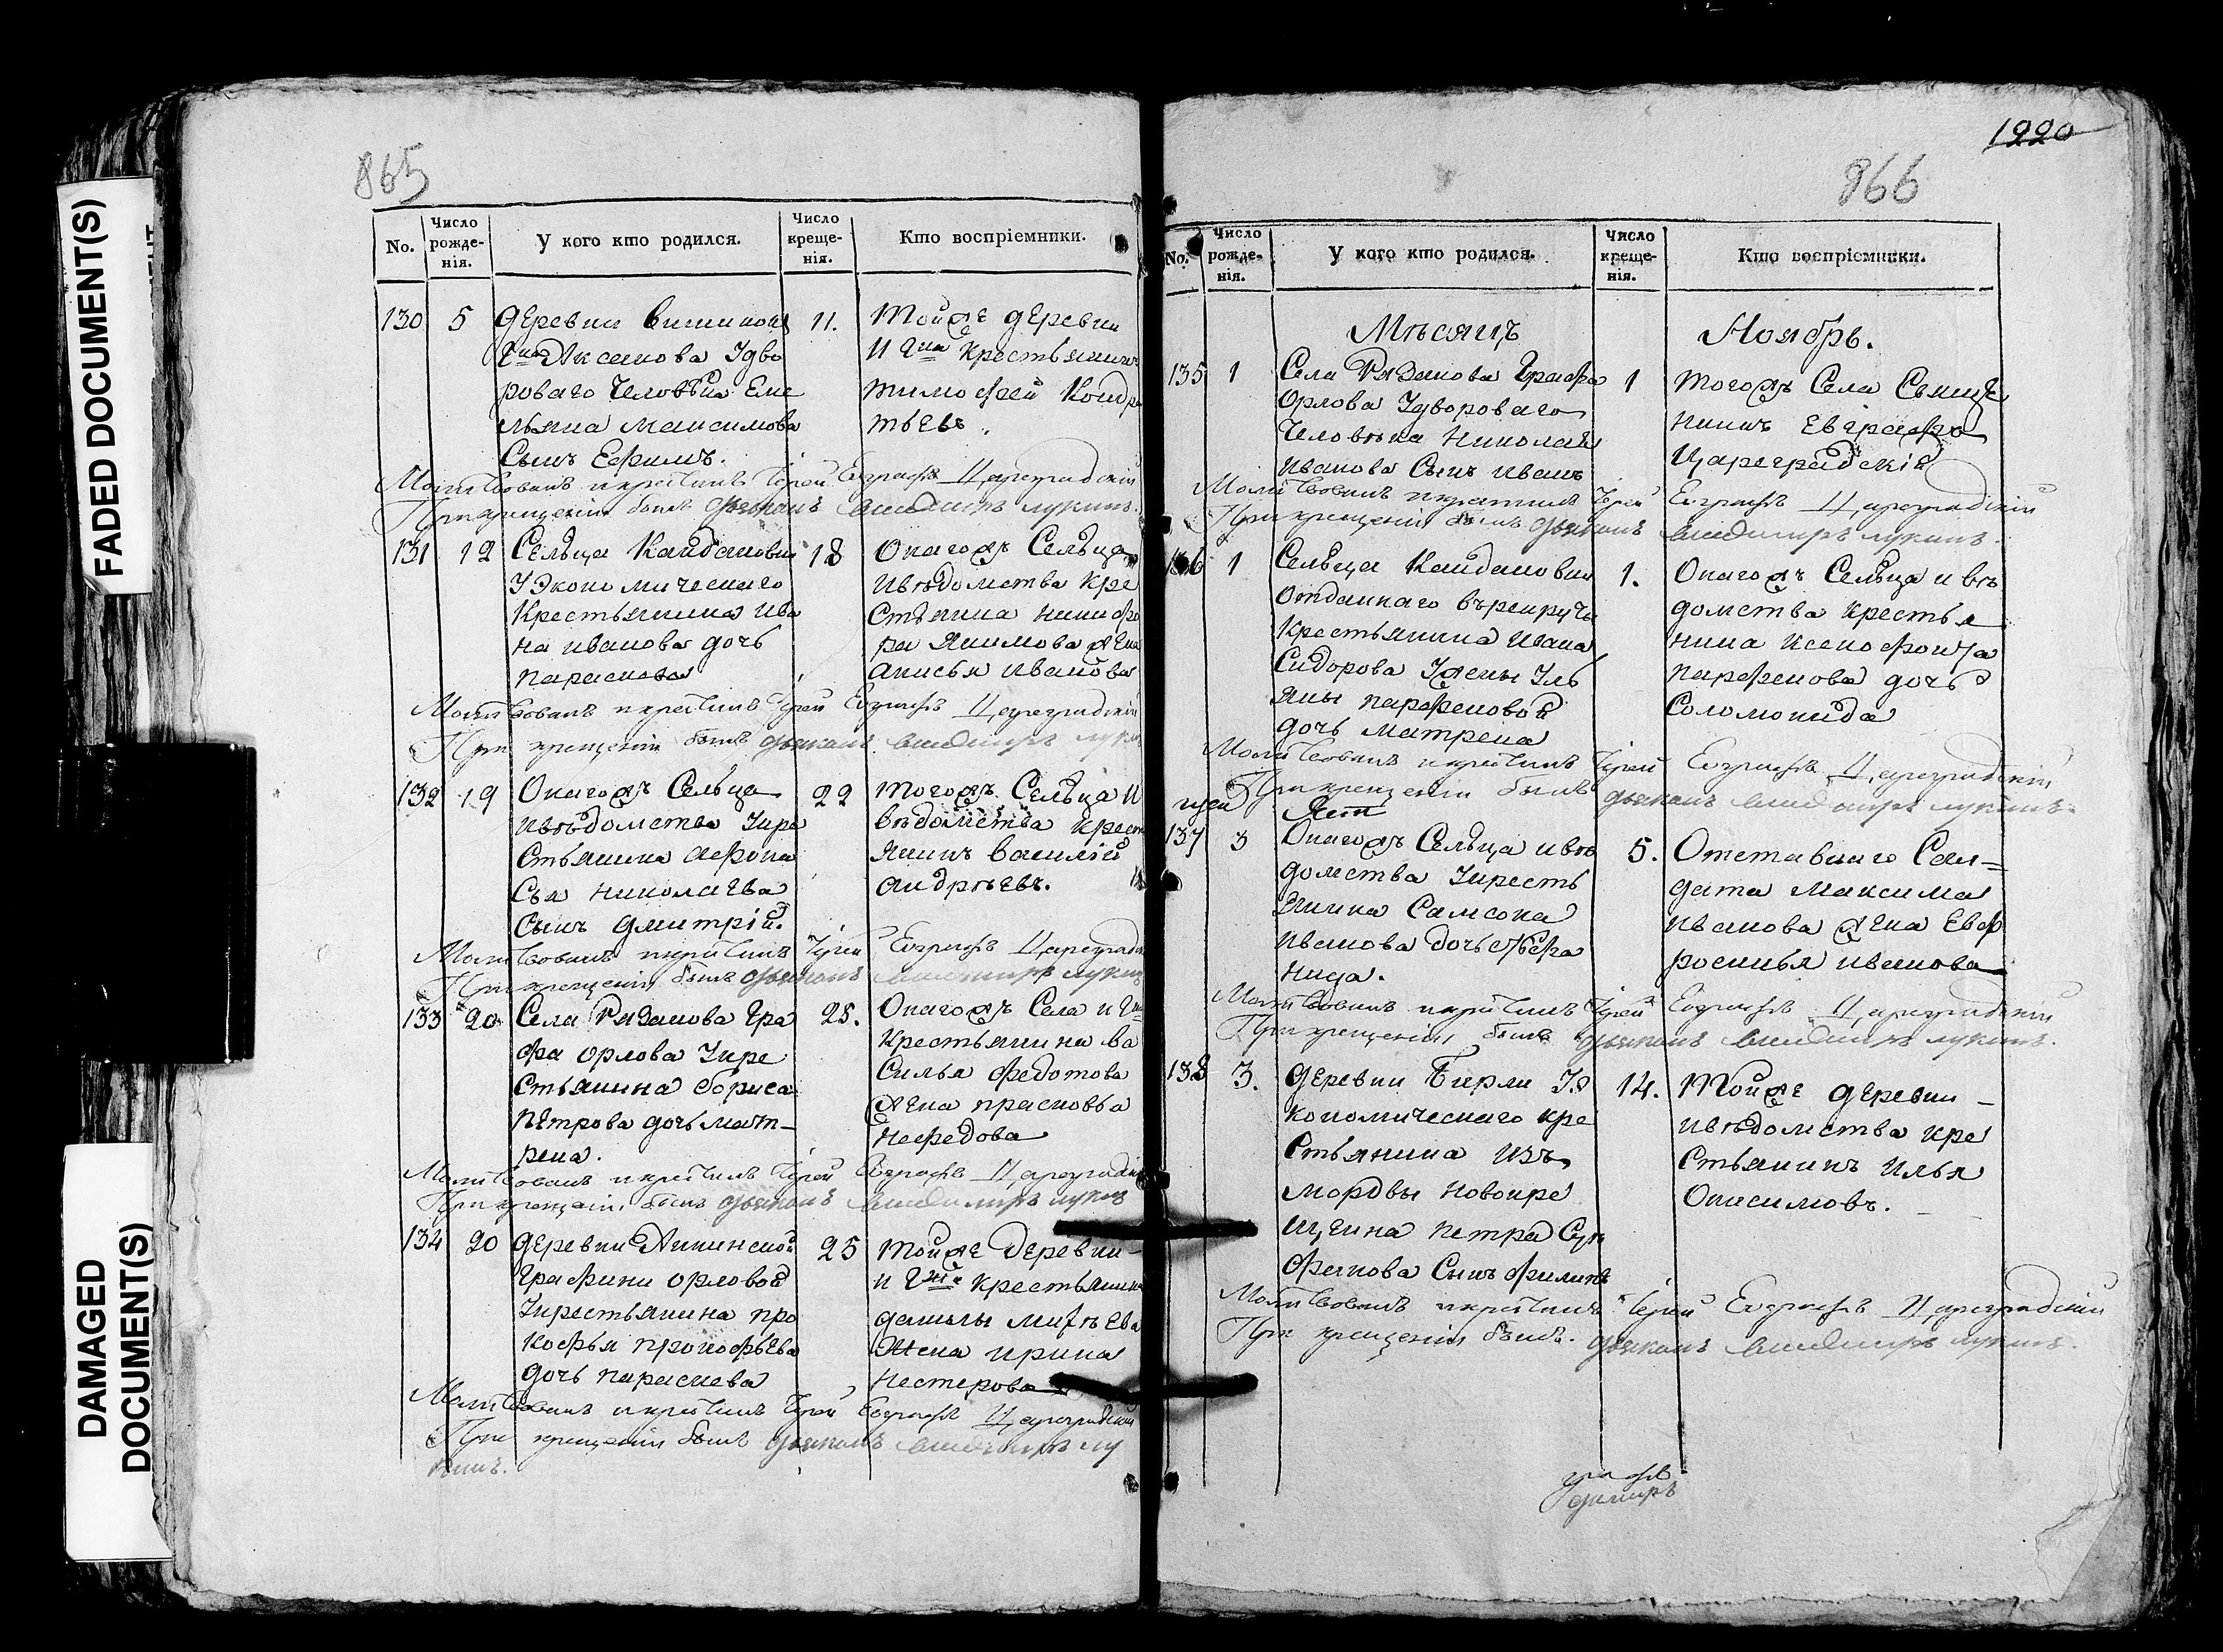 FADED DOCUMENT(S)
DAMAGED
DOCUMENT(S)
865
No.
Число
рожде-
нія.
У кого кто родился.
Число
креще-
нія.
Кто воспріемники.
130 5 деревни
Аксакова Удво
роваго человѣка Еме
льяна Максимова
Сынъ Ефимъ.
11. Тойже деревни
И Гна крестьянинъ
Тимофей Кондра
тьевъ.
Молитвовалъ и крестилъ Іерей Евграфъ Цареградскій
При крещеніи былъ дьяконъ Владимиръ Лукинъ.
131 12 Сельца Кайдановки
У Экономическаго
Крестьянина Ива
на Иванова дочь
Парасковья
18 Онагожъ Сельца
И вѣдомства Кре
стьянина Никифо
ра Якимова жена
Анисья Иванова
Молитвовалъ и крестилъ Іерей Евграфъ Цареградскій
При крещеніи былъ дьяконъ Владимиръ
132 19 Онагожъ Сельца
И вѣдомства Укре
стьянина Афона
сья Николаева
Сынъ Дмитрій.
22 Тогожъ Сельца И
вѣдомства Крест
янинъ Василій
Андрѣевъ.
Молитвовалъ и крестилъ Іерей Евграфъ
При крещеніи былъ дьяконъ Владимиръ
133 20 Села Рязанова Гра
фа Орлова Укре
стьянина Бориса
Петрова дочь Мат-
рена.
25. Онагожъ Села и Гна
Крестьянина Ва
силья Федотова
жена Прасковья
Нефедова
Молитвовалъ и крестилъ Іерей Евграфъ
При крещеніи былъ дьяконъ Владимиръ
134 20 деревни
Графини Орловой
Укрестьянина Про
кофья Прокофьева
дочь
25 Тойже деревни
и Гжи крестьянина
данилы
Жена Ирина
Нестерова
Молитвовалъ и крестилъ Іерей Евграфъ Цареградскій
При крещеніи былъ дьяконъ Владимиръ Лу
кинъ.
1220
866
No.
Число
рожде-
нія.
У кого кто родился.
Число
креще-
нія.
Кто воспріемники.
Мѣсяцъ Ноябрь.
135 1 Села Рязанова Графа
Орлова Удвороваго
Человѣка Николая
Иванова Сынъ Иванъ
1 Тогожъ Села Свяще
нникъ Евграфъ
Цареградскій
Молитвовалъ и крестилъ Іерей Евграфъ Цареградскій
При крещеніи былъ дьяконъ Владимиръ Лукинъ.
136 1 Сельца Кайдановки
Отданнаго врекруты
Крестьянина Ивана
Сидорова Ужены Уль
яны Парфеновой
дочь Матрена
1. Онагожъ Сельца и вѣ
домства Крестья
нина Ксенофонта
Парфенова дочь
Соломонида
Молитвовалъ и крестилъ Іерей Евграфъ Цареградскій
При крещеніи былъ дьяконъ Владимиръ Лукинъ.
137 3 Онагожъ Сельца и вѣ
домства Укресть
янина Самсона
Иванова дочь
5. Отставнаго Сол-
дата Максима
Иванова жена Евф
росинья Иванова
Молитвовалъ и крестилъ Іерей Евграфъ Цареградскій
При крещеніи былъ дьяконъ Владимиръ Лукинъ.
138 3. деревни Бирли Уэ
кономическаго Кре
стьянина Изъ
мордвы новокре
щена Петра
Сынъ Филипъ
14. Тойже деревни
И вѣдомства кре
стьянинъ Илья
Онисимовъ.
Молитвовалъ и крестилъ Іерей Евграфъ Цареградскій
При крещеніи былъ. дьяконъ Владимиръ Лукинъ.